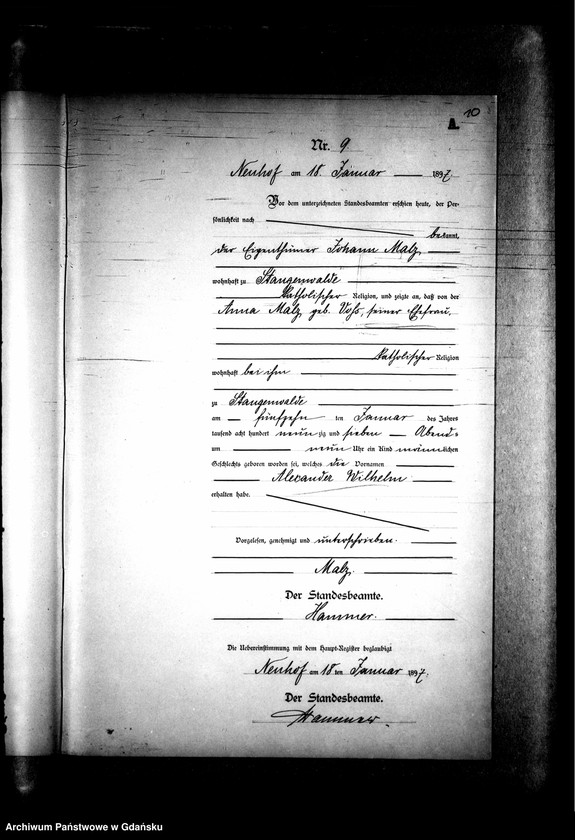 10
A.
Nr. 9
Neuhof am 18. Januar 1897.
Vor dem unterzeichneten Standesbeamten erschien heute, der Per-
sönlichkeit nach
bekannt,
der Eigenthümer Johann Malz,
wohnhaft zu Stangenwalde
katholischer Religion, und zeigte an, daß von der
Anna Malz geb. Voß, seiner Ehefrau,
katholischer Religion
wohnhaft bei ihm
zu Stangenwalde
am fünfzehn ten Januar des Jahres
tausend acht hundert neunzig und sieben Abend=
um neun Uhr ein Kind männlichen
Geschlechts geboren worden sei, welches die Vornamen
Alexander Wilhelm
erhalten habe.
Vorgelesen, genehmigt und unterschrieben.
Malz.
Der Standesbeamte.
Hammer.
Die Uebereinstimmung mit dem Haupt-Register beglaubigt
Neuhof am 18 ten Januar 1897.
Der Standesbeamte.
Hammer.
Archiwum Państwowe w Gdańsku